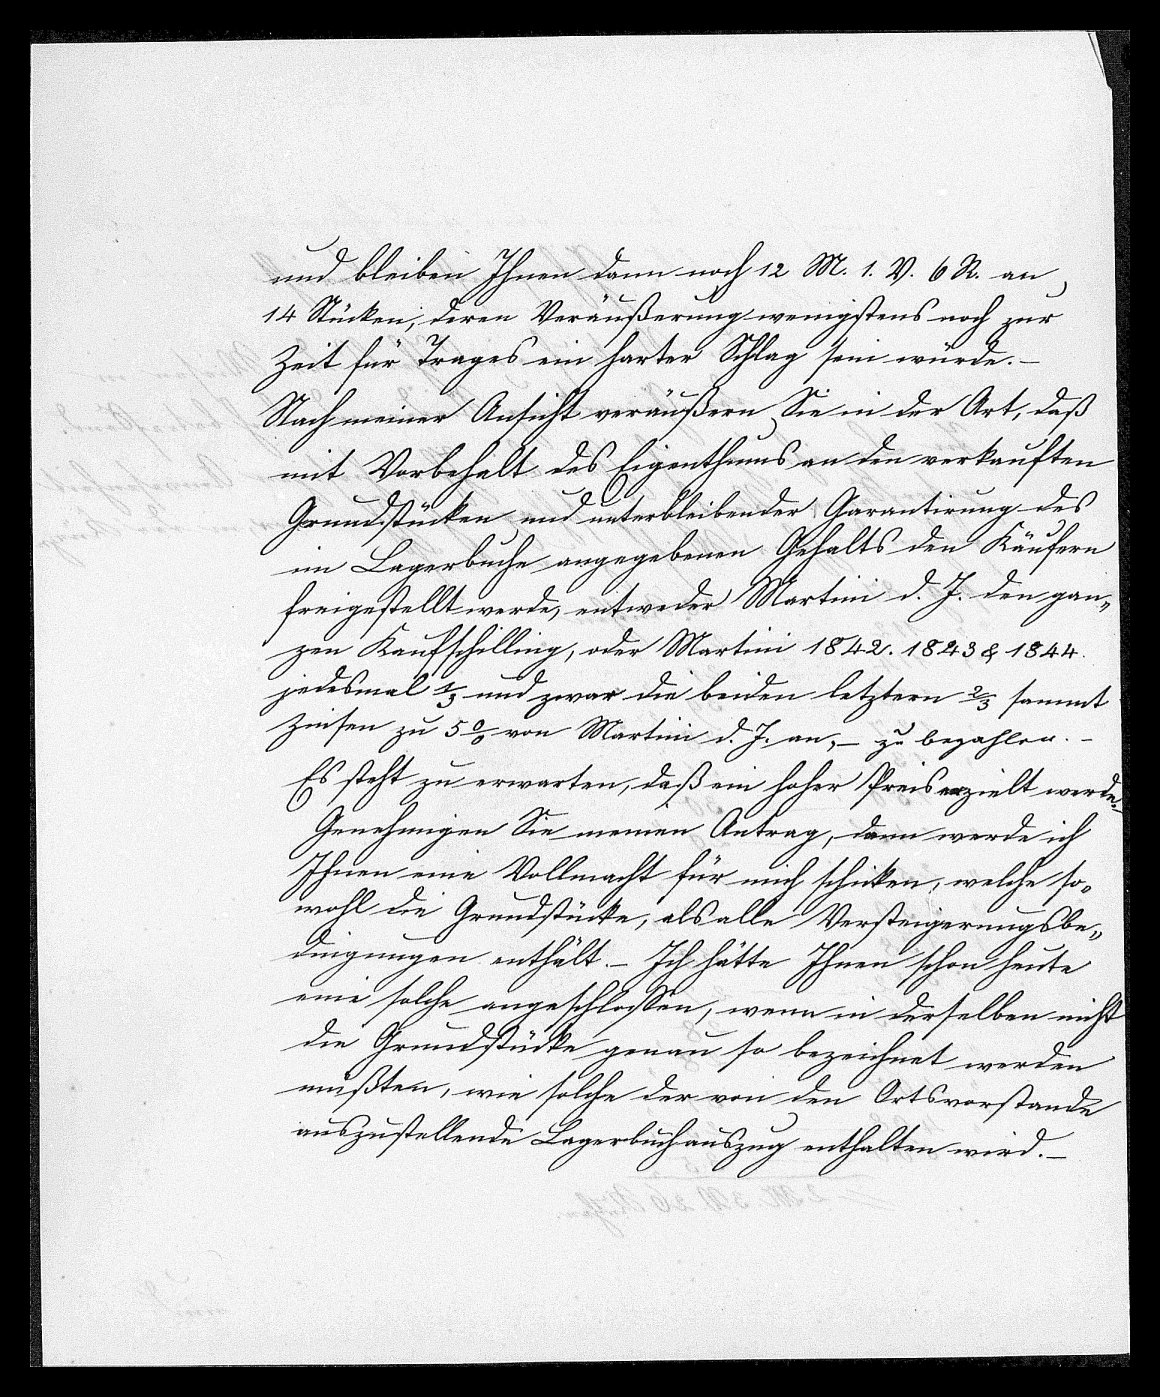 und bleiben Ihnen dann noch 12 M. 1. V. 6 R. an
14 Stücken, deren Veräußerung wenigstens noch zur
Zeit für Trages ein harter Schlag sein würde. –
Nach meiner Ansicht veräußern Sie in der Art, daß
mit Vorbehalt des Eigenthums an den verkauften
Grundstücken und unterbleibender Garantirung des
im Lagerbuche angegebenen Gehalts den Käufern
freigestellt werde, entweder Martini d. J. den gan„
zen Kaufschilling, oder Martini 1842. 1843 & 1844.
jedesmal 1/3 und zwar die beiden letztern 2/3 sammt
Zinsen zu 5 % von Martini d. J. an, – zu bezahlen. –
Es steht zu erwarten, daß ein hoher Preis erzielt werde. –
Genehmigen Sie meinen Antrag, dann werde ich
Ihnen eine Vollmacht für mich schicken, welche so„
wohl die Grundstücke, als alle Versteigerungsbe„
dingungen enthält. – Ich hätte Ihnen schon heute
eine solche angeschlossen, wenn in derselben nicht
die Grundstücke genau so bezeichnet werden
müßten, wie solche der von den Ortsvorstande
auszustellende Lagerbuchauszug enthalten wird. –